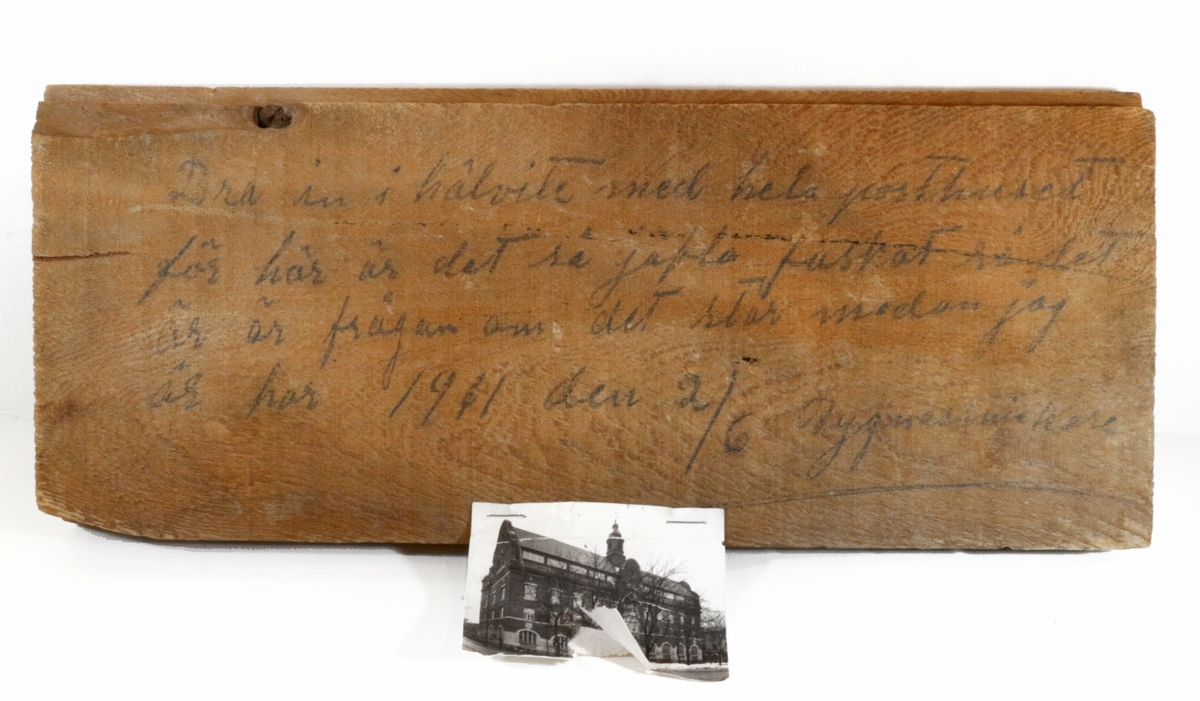 Dra in i hälvite med hela posthuset
för här är det så jäkla fuskat så det
är är frågan om det står medan jag
är här 1911 den 2/6 Bygnassnickare